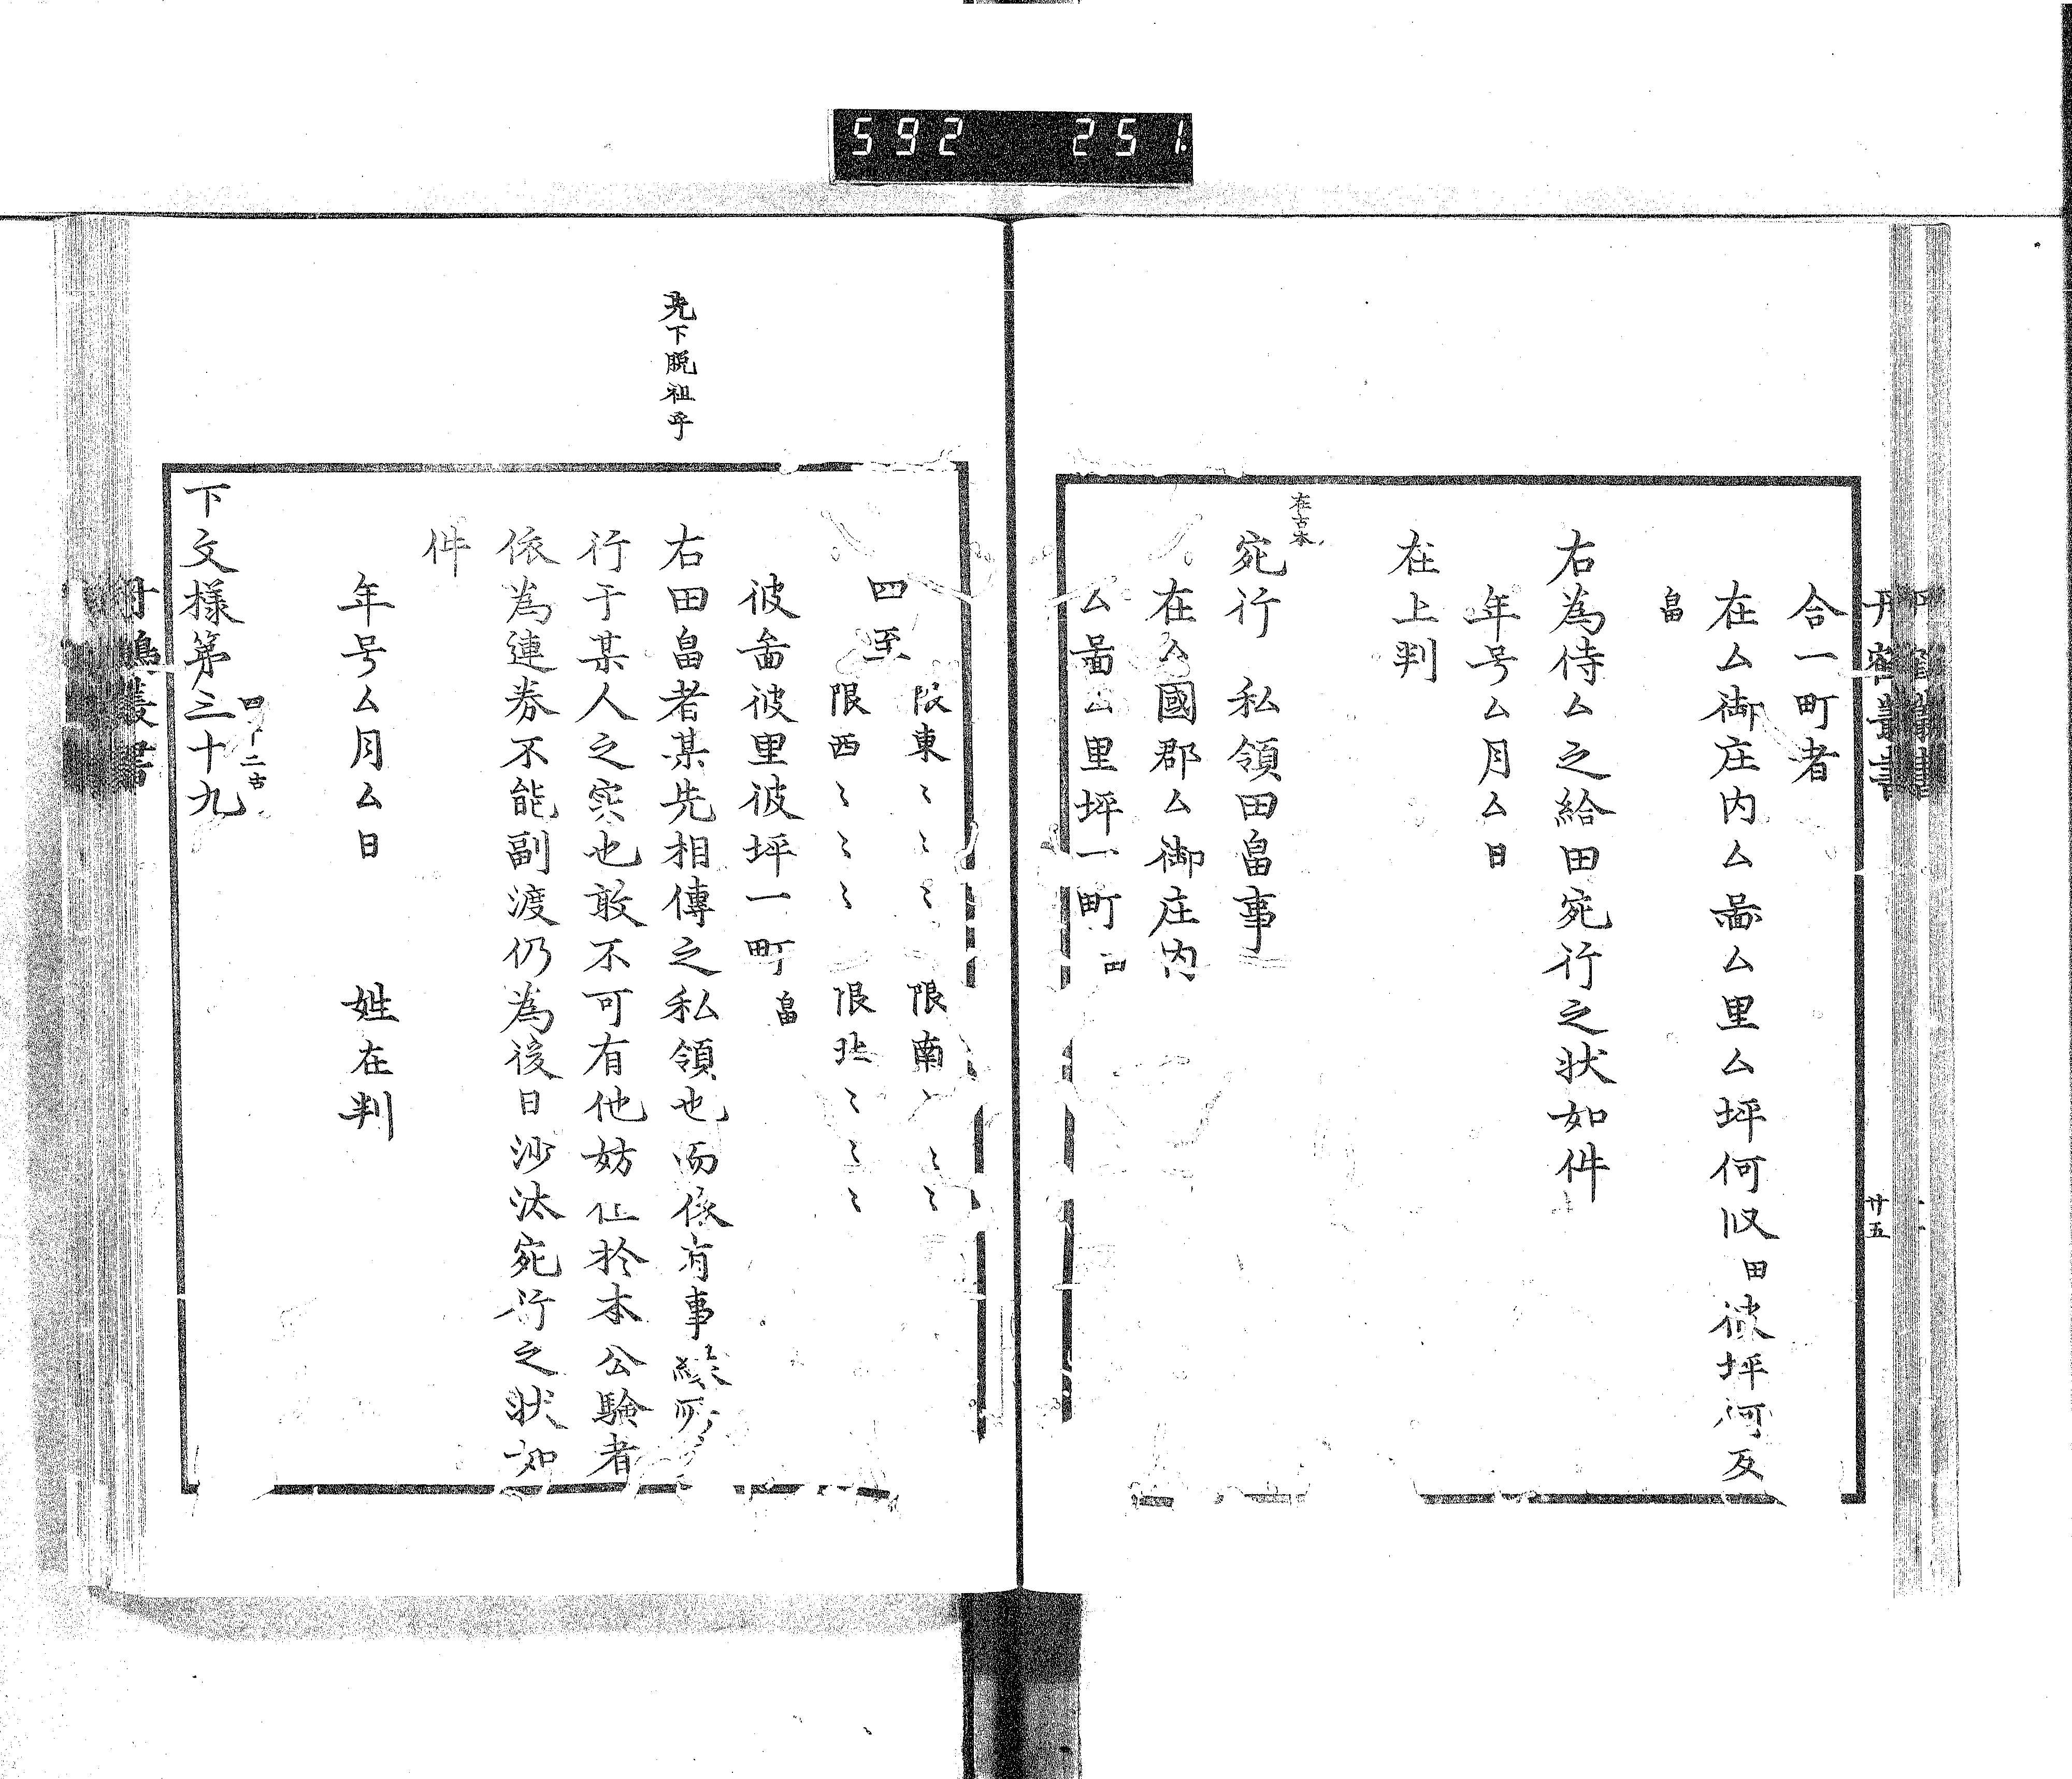 592 251
丹鶴叢書
廿五
合一町者
在厶御庄内厶啚厶里厶坪何段田彼坪何反
畠
右為侍厶之給田宛行之状如件
年号厶月厶日
在上判
在古本
宛行 私領田畠事
在厶國郡厶御庄内
厶啚厶里坪一町田
四至 限東〻〻〻 限南〻〻〻
限西〻〻〻 限北〻〻〻
彼啚彼里彼坪一町畠
先下脱祖乎
右田畠者某先相傳之私領也而依有事縁所
行于某人之実也敢不可有他妨但於本公験者
依為連券不能副渡仍為後日沙汰宛行之状如
件
年号厶月厶日 姓在判
下文様第三十九
四十二古
丹鶴叢書